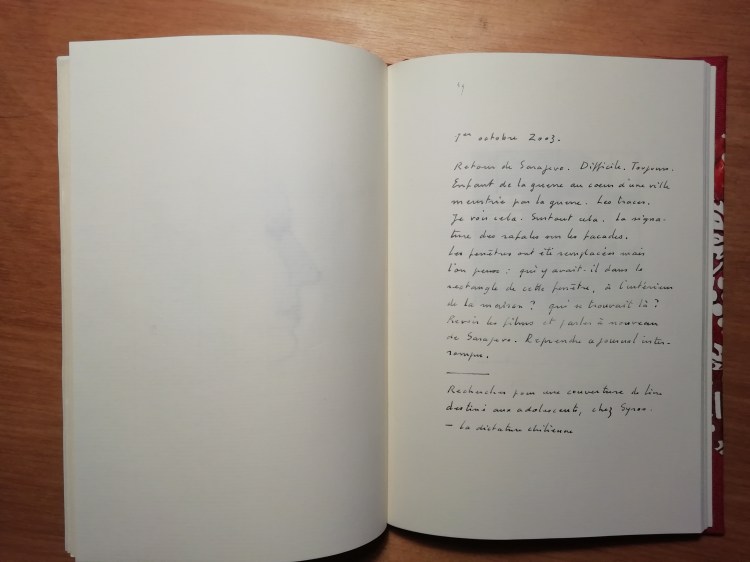 1er octobre 2003.
Retour de Sarajevo. Difficile. Toujours.
Enfant de la guerre au coeur d'une ville
meurtrie par la guerre. Les traces.
Je vois cela. Surtout cela. La signa-
ture des rafales sur les façades.
Les fenêtres ont été remplacées mais
l'on pense : qui y avait-il dans le
rectangle de cette fenêtre, à l'intérieur
de la maison ? qui se trouvait là ?
Revoir les films et parler à nouveau
de Sarajevo. Reprendre ce journal inter-
rompu.
Recherches pour une couverture de livre
destiné aux adolescents, chez Syros.
— La dictature chilienne